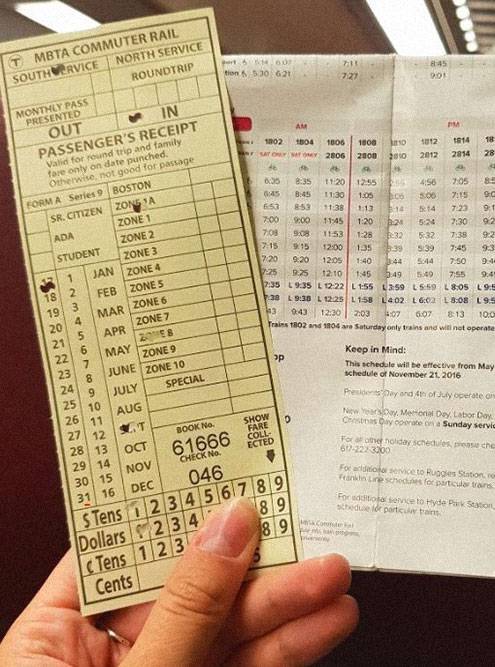 T MBTA COMMUTER RAIL
SOUTH SERVICE NORTH SERVICE
ROUNDTRIP
MONTHLY PASS
PRESENTED
OUT IN
PASSENGER'S RECEIPT
Valid for round trip and family
fare only on date punched.
Otherwise, not good for passage
FORM A Series 9 BOSTON
SR. CITIZEN ZONE 1A
ADA ZONE 1
STUDENT ZONE 2
ZONE 3
1 JAN ZONE 4
18 2 FEB ZONE 5
19 3 MAR ZONE 6
20 4 APR ZONE 7
21 5 MAY ZONE 8
22 6 JUNE ZONE 9
23 7 JULY ZONE 10
24 8 AUG SPECIAL
25 9
26 10 OCT
27 11 NOV
28 12 DEC
29 13
30 14
31 15
16
BOOK No.
61666
CHECK No.
046
SHOW
FARE
COLL-
ECTED
$ Tens 1 2 3 4 5 6 7 8 9
Dollars 2 3 4 8 9
¢ Tens 1 2 3 8 9
Cents
7:11 8:45
5:30 6:21 7:27 9:01
AM PM
1802 1804 1806 1808 1810 1812 1814
SAT ONLY SAT ONLY 2806 2808 2810 2812 2814
6:35 8:35 11:20 12:55 4:56 7:05
6:45 8:45 11:30 1:05 5:06 7:15
6:53 8:53 11:38 1:13 5:14 7:23
7:00 9:00 11:45 1:20 3:24 5:24 7:30
7:08 9:08 11:53 1:28 3:32 5:32 7:38
7:15 9:15 12:00 1:35 3:39 5:39 7:45
7:20 9:20 12:05 1:40 3:44 5:44 7:50
7:25 9:25 12:10 1:45 3:49 5:49 7:55
7:35 L 9:35 L 12:22 L 1:55 L 3:59 L 5:59 L 8:05
7:38 L 9:38 L 12:25 L 1:58 L 4:02 L 6:02 L 8:08
9:43 12:30 2:03 4:07 6:07 8:13
Trains 1802 and 1804 are Saturday only trains and will not operate
Keep in Mind:
This schedule will be effective from May
schedule of November 21, 2016
Presidents' Day and 4th of July operate on
New Year's Day, Memorial Day, Labor Day,
Christmas Day operate on a Sunday servic
For all other holiday schedules, please che
617-222-3200
For additional service to Ruggles Station, re
Franklin Line schedules for particular trains.
For additional service to Hyde Park Station,
schedule for particular trains.
MBTA Commuter Rail